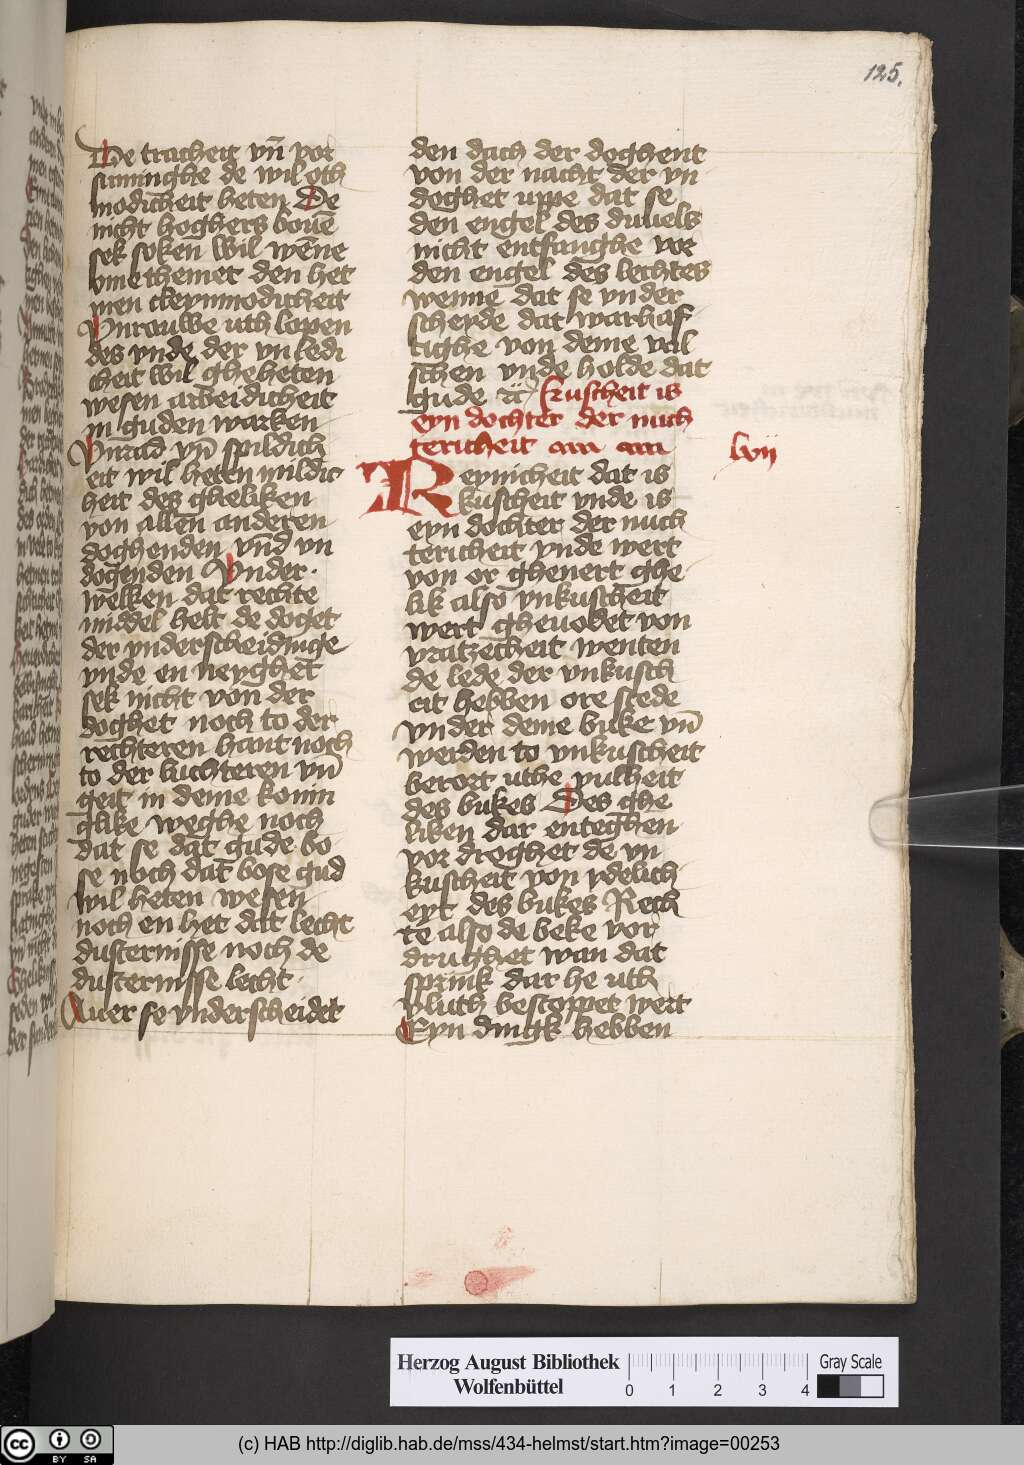 125.
De tracheit vn̄ vor
suminghe de wil oth
modicheit heten De
nicht hoghers bouē
sek soken wil wēne
ome themet den het
men cleynmodicheit
Vnrouwe uth lopen
des vnde der vn ledi
cheit wil gheheten
wesen arbeidicheit
in guden warken
Vnrad vn̄ spildich
eit wil heten mildic
heit des gheliken
von allen anderen
doghenden vnd vn
dogenden Vnder
welken dat rechte
middel helt de doget
der vnderscheidinge
vnde en neyghet
sek nicht von der
doghet noch to der
rechteren hant noch
to der luchteren vn̄
geit in deme konin
glike weghe noch
dat se dat gude bo
se noch dat bose gud
wil heten wesen
noch en het dat lecht
dusternisse noch de
dusternisse lecht
Auer se vnderscheidet
den dach der doghent
von der nacht der vn
doghet uppe dat se
den engel des duuels
nicht entfanghe vor
den engel des lechtes
wenne dat se vnder
scheyde dat warhaf
tighe von deme val
schen vnde holde dat
gude
kuscheit is
eyn dochter der nuch
tericheit
lvij
Reynicheit dat is
kuscheit vnde is
eyn dochter der nuch
tericheit vnde wert
von or ghenert ghe
lik also vnkuscheit
wert gheuodet von
vratzecheit wenten
de lede der vnkusch
eit hebben ore stede
vnder deme buke vn̄
werden to vnkuscheit
beroet uthe vulheit
des bukes Des ghe
liken dar enteghen
vor dreghet de vn
kuscheit von ydelich
eyt des bukes Rech
te also de beke vor
drughet wan dat
sprink dar he uth
vluth bestoppet wert
Eyn dingk hebben
Herzog August Bibliothek
Wolfenbüttel
0 1 2 3 4
Gray Scale
cc BY SA
(c) HAB http://diglib.hab.de/mss/434-helmst/start.htm?image=00253